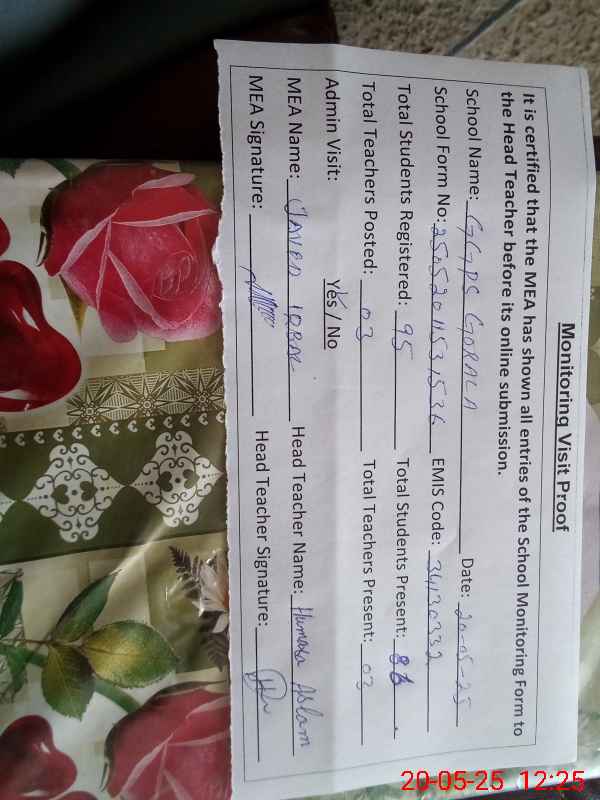 Monitoring Visit Proof
It is certified that the MEA has shown all entries of the School Monitoring Form to
the Head Teacher before its online submission.
School Name: GGPS GORALA Date: 20-05-25
School Form No: EMIS Code: 34130332
Total Students Registered: 95 Total Students Present:
Total Teachers Posted: 03 Total Teachers Present: 03
Admin Visit: Yes / No
MEA Name: JAVED IQBAL Head Teacher Name: Humera Aslam
MEA Signature: Head Teacher Signature:
20-05-25 12:25